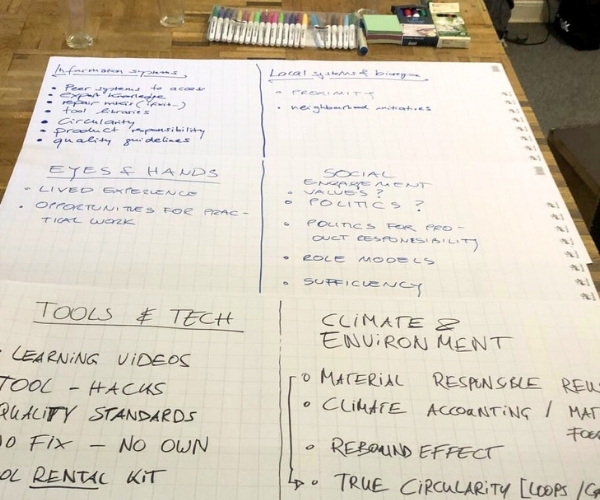 Information systems
• Peer systems to access
• Expert knowledge
• repair (ifixit...)
• tool libraries
• Circularity
• product responsibility
• quality guidelines
Local systems &
• PROXIMITY
• neighborhood initiatives
EYES & HANDS
• LIVED EXPERIENCE
• OPPORTUNITIES FOR PRAC-
TICAL WORK
SOCIAL
ENGAGEMENT
• VALUES?
• POLITICS?
• POLITICS FOR PRO-
DUCT RESPONSIBILITY
• ROLE MODELS
• SUFFICIENCY
TOOLS & TECH
• LEARNING VIDEOS
TOOL - HACKS
QUALITY STANDARDS
NO FIX - NO OWN
OL RENTAL KIT
CLIMATE &
ENVIRONMENT
• MATERIAL RESPONSIBLE REU
• CLIMATE ACCOUNTING / MAT
FOO
• REBOUND EFFECT
• TRUE CIRCULARITY [LOOPS /